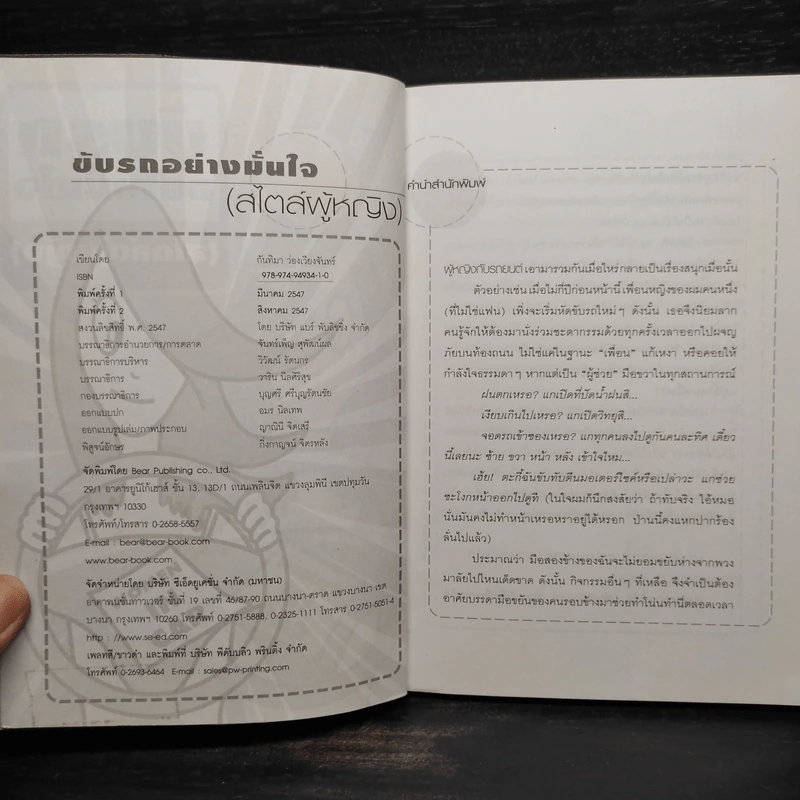 ขับรถอย่างมั่นใจ
(สไตล์ผู้หญิง)
เขียนโดย กันทิมา ว่องเวียงจันทร์
ISBN 978-974-94934-1-0
พิมพ์ครั้งที่ 1 มีนาคม 2547
พิมพ์ครั้งที่ 2 สิงหาคม 2547
สงวนลิขสิทธิ์ พ.ศ. 2547 โดย บริษัท แบร์ พับลิชชิ่ง จำกัด
บรรณาธิการอำนวยการ/การตลาด จันทร์เพ็ญ สุพัฒน์ผล
บรรณาธิการบริหาร วิวัฒน์ รัตนกร
บรรณาธิการ วาริน นิลศิริสุข
กองบรรณาธิการ บุญศรี ศรีบุญรัตนชัย
ออกแบบปก อมร นิลเทพ
ออกแบบรูปเล่ม/ภาพประกอบ ญาณินี จิตเสรี
พิสูจน์อักษร กิ่งกาญจน์ จิตรหลัง
จัดพิมพ์โดย Bear Publishing co., Ltd.
29/1 อาคารยูนิโก้เฮาส์ ชั้น 13, 13D/1 ถนนเพลินจิต แขวงลุมพินี เขตปทุมวัน
กรุงเทพฯ 10330
โทรศัพท์/โทรสาร 0-2658-5557
E-mail : bear@bear-book.com
www.bear-book.com
จัดจำหน่ายโดย บริษัท ซีเอ็ดยูเคชั่น จำกัด (มหาชน)
อาคารเนชั่นทาวเวอร์ ชั้นที่ 19 เลขที่ 46/87-90 ถนนบางนา-ตราด แขวงบางนา เขต
บางนา กรุงเทพฯ 10260 โทรศัพท์ 0-2751-5888, 0-2325-1111 โทรสาร 0-2751-5051-4
http : //www.se-ed.com
เพลทสี/ขาวดำ และพิมพ์ที่ บริษัท พีดับบลิว พรินติ้ง จำกัด
โทรศัพท์ 0-2693-6464 E-mail : sales@pw-printing.com
คำนำสำนักพิมพ์
ผู้หญิงกับรถยนต์ เอามารวมกันเมื่อไหร่กลายเป็นเรื่องสนุกเมื่อนั้น
ตัวอย่างเช่น เมื่อไม่กี่ปีก่อนหน้านี้ เพื่อนหญิงของผมคนหนึ่ง
(ที่ไม่ใช่แฟน) เพิ่งจะเริ่มหัดขับรถใหม่ๆ ดังนั้น เธอจึงนิยมลาก
คนรู้จักให้ต้องมานั่งร่วมชะตากรรมด้วยทุกครั้งเวลาออกไปผจญ
ภัยบนท้องถนน ไม่ใช่แค่ในฐานะ “เพื่อน” แก้เหงา หรือคอยให้
กำลังใจธรรมดาๆ หากแต่เป็น “ผู้ช่วย” มือขวาในทุกสถานการณ์
ฝนตกเหรอ? แกเปิดที่ปัดน้ำฝนสิ...
เงียบเกินไปเหรอ? แกเปิดวิทยุสิ...
จอดรถเข้าซองเหรอ? แกทุกคนลงไปดูกันคนละทิศ เดี๋ยว
นี้เลยนะ ซ้าย ขวา หน้า หลัง เข้าใจไหม...
เฮ้ย! ตะกี้ฉันขับทับตีนมอเตอร์ไซค์หรือเปล่าวะ แกช่วย
ชะโงกหน้าออกไปดูที (ในใจผมก็นึกสงสัยว่า ถ้าทับจริง ไอ้หมอ
นั่นมันคงไม่ทำหน้าเหรอหราอยู่ได้หรอก ป่านนี้คงแหกปากร้อง
ลั่นไปแล้ว)
ประมาณว่า มือสองข้างของฉันจะไม่ยอมขยับห่างจากพวง
มาลัยไปไหนเด็ดขาด ดังนั้น กิจกรรมอื่นๆ ที่เหลือ จึงจำเป็นต้อง
อาศัยบรรดามือขยันของคนรอบข้างมาช่วยทำโน่นทำนี่ตลอดเวลา